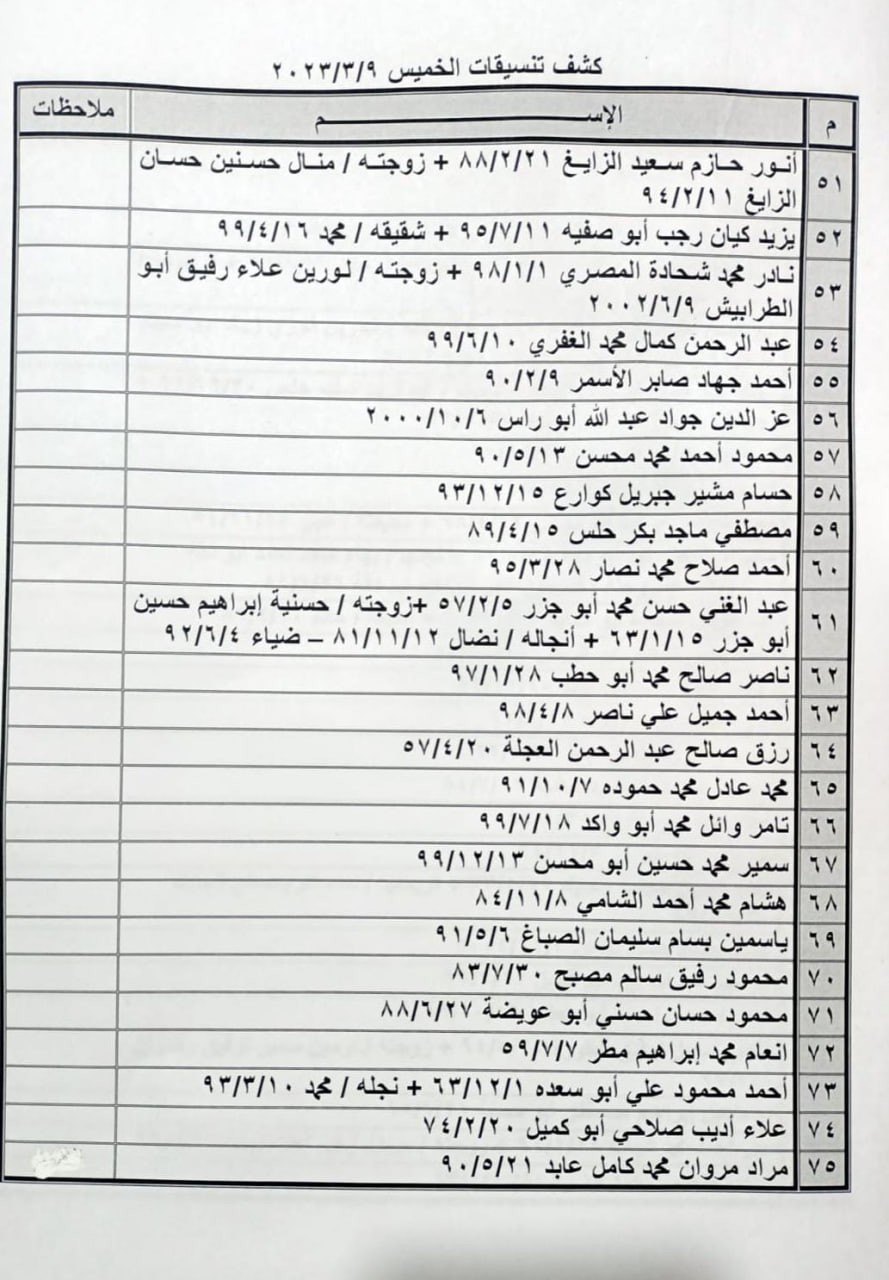 كشف تنسيقات الخميس ٢٠٢٣/٣/٩
م الإســـــــم ملاحظات
٥١ أنـور حـازم سـعيد الزايـغ ٨٨/٢/٢١ + زوجتـه / منـال حسـنين حسـان
الزايغ ٩٤/٢/١١
٥٢ يزيد كيان رجب أبو صفيه ٩٥/٧/١١ + شقيقه / محمد ٩٩/٤/١٦
٥٣ نـادر محمد شـحادة المصـري ٩٨/١/١ + زوجتـه / لـورين عـلاء رفيـق أبـو
الطرابيش ٢٠٠٢/٦/٩
٥٤ عبد الرحمن كمال محمد الغفري ٩٩/٦/١٠
٥٥ أحمد جهاد صابر الأسمر ٩٠/٢/٩
٥٦ عز الدين جواد عبد الله أبو راس ٢٠٠٠/١٠/٦
٥٧ محمود أحمد محمد محسن ٩٠/٥/١٣
٥٨ حسام مشير جبريل كوارع ٩٣/١٢/١٥
٥٩ مصطفي ماجد بكر حلس ٨٩/٤/١٥
٦٠ أحمد صلاح محمد نصار ٩٥/٣/٢٨
٦١ عبد الغني حسن محمد أبو جزر ٥٧/٢/٥ +زوجته / حسنية إبراهيم حسين
أبو جزر ٦٣/١/١٥ + أنجاله / نضال ٨١/١١/١٢ – ضياء ٩٢/٦/٤
٦٢ ناصر صالح محمد أبو حطب ٩٧/١/٢٨
٦٣ أحمد جميل علي ناصر ٩٨/٤/٨
٦٤ رزق صالح عبد الرحمن العجلة ٥٧/٤/٢٠
٦٥ محمد عادل محمد حموده ٩١/١٠/٧
٦٦ تامر وائل محمد أبو واكد ٩٩/٧/١٨
٦٧ سمير محمد حسين أبو محسن ٩٩/١٢/١٣
٦٨ هشام محمد أحمد الشامي ٨٤/١١/٨
٦٩ ياسمين بسام سليمان الصباغ ٩١/٥/٦
٧٠ محمود رفيق سالم مصبح ٨٣/٧/٣٠
٧١ محمود حسان حسني أبو عويضة ٨٨/٦/٢٧
٧٢ انعام محمد إبراهيم مطر ٥٩/٧/٧
٧٣ أحمد محمود علي أبو سعده ٦٣/١٢/١ + نجله / محمد ٩٣/٣/١٠
٧٤ علاء أديب صلاحي أبو كميل ٧٤/٢/٢٠
٧٥ مراد مروان محمد كامل عابد ٩٠/٥/٢١